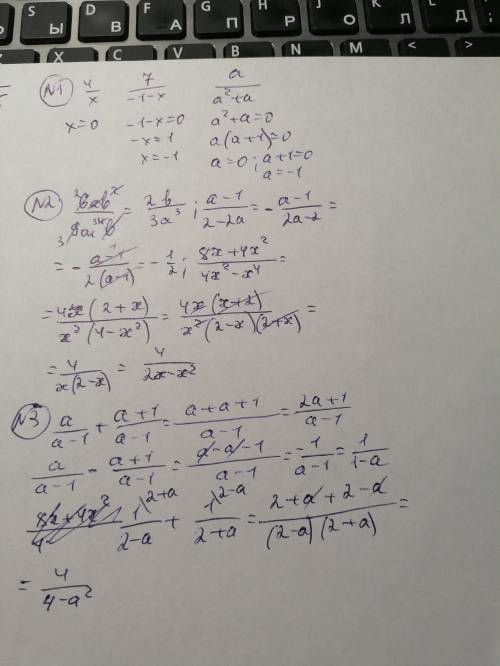 Ы В А П Р О Л Д
S D F G H J K L
X C V B N M < >
№1 4/x 7/(-1-x) a/(a²+a)
x=0 -1-x=0 a²+a=0
-x=1 a(a+1)=0
x=-1 a=0; a+1=0
a=-1
№2 = 2b/(3a³); (a-1)/(2-2a) = -(a-1)/(2a-2) =
= -(a-1)/(2(a-1)) = -1/2; (8x+4x²)/(4x²-x⁴) =
= 4x(2+x)/(x²(4-x²)) = 4x(x+2)/(x²(2-x)(2+x)) =
= 4/(x(2-x)) = 4/(2x-x²)
№3 a/(a-1) + (a+1)/(a-1) = (a+a+1)/(a-1) = (2a+1)/(a-1)
a/(a-1) - (a+1)/(a-1) = (a-a-1)/(a-1) = -1/(a-1) = 1/(1-a)
1^(2+a)/(2-a) + 1^(2-a)/(2+a) = (2+a+2-a)/((2-a)(2+a)) =
= 4/(4-a²)